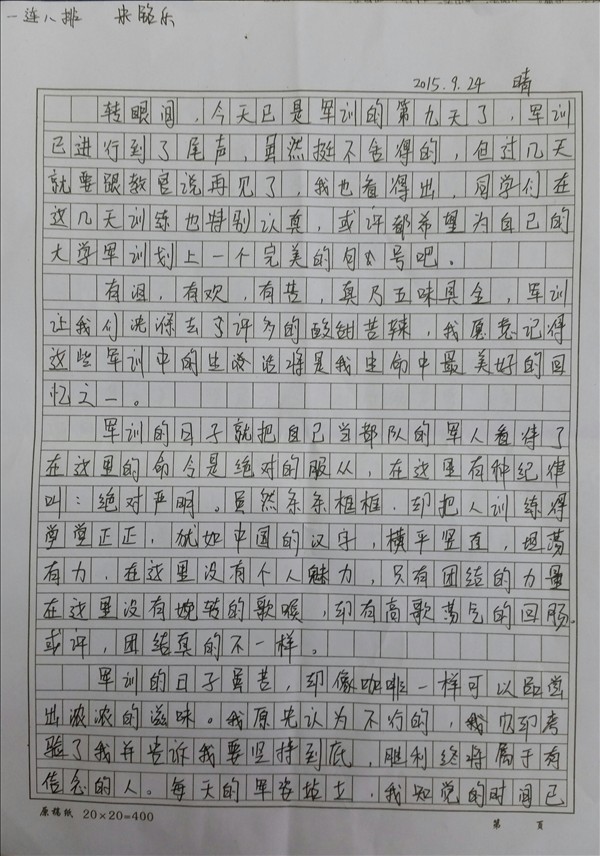 一连八排 朱铭乐
2015.9.24 晴
转眼间，今天已是军训的第九天了，军训
已进行到了尾声，虽然挺不舍得的，但过几天
就要跟教官说再见了，我也看得出，同学们在
这几天训练也特别认真，或许都希望为自己的
大学军训划上一个完美的句号吧。
有泪，有欢，有苦，真乃五味具全，军训
让我们洗涤去了许多的酸甜苦辣，我愿意记得
这些军训中的生活将是我生命中最美好的回
忆之一。
军训的日子就把自己当部队的军人看待了
在这里的命令是绝对的服从，在这里有种纪律
叫：绝对严明。虽然条条框框，却把人训练得
堂堂正正，犹如中国的汉字，横平竖直，坦荡
有力，在这里没有个人魅力，只有团结的力量
在这里没有婉转的歌喉，却有高歌荡气的回肠。
或许，团结真的不一样。
军训的日子虽苦，却像咖啡一样可以品尝
出浓浓的滋味。我原先认为不行的，我却考
验了我并告诉我要坚持到底，胜利终将属于有
信念的人。每天的军姿站立，我知觉的时间已
原稿纸 20×20=400
第 页